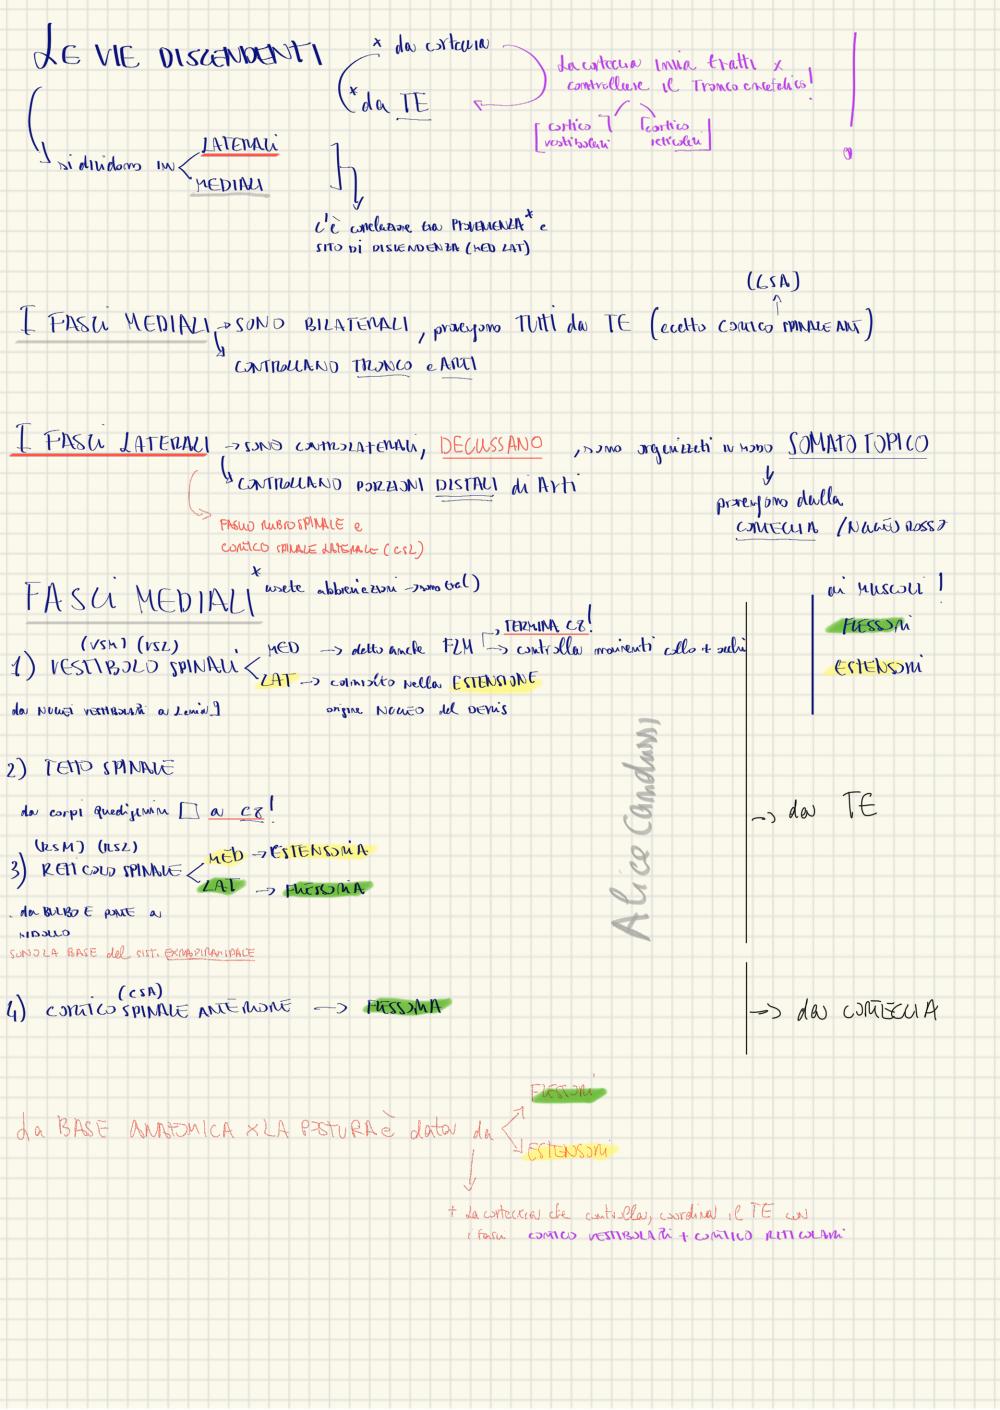 LE VIE DISCENDENTI
* da corteccia
* da TE
La corteccia invia tratti x
controllare il Tronco encefalico!
[cortico vestibolari]
[cortico reticolari]
si dividono in
LATERALI
MEDIALI
c'è correlazione tra PROVENIENZA* e
SITO DI DISCENDENZA (MED LAT)
(CSA)
I FASCI MEDIALI → SONO BILATERALI, provengono TUTTI da TE (eccetto CORTICO SPINALE ANT)
CONTROLLANO TRONCO e ARTI
I FASCI LATERALI → SONO CONTROLATERALI, DECUSSANO, sono organizzati in modo SOMATO TOPICO
CONTROLLANO PORZIONI DISTALI di Arti
provengono dalla
CORTECCIA / NUCLEO ROSSO
FASCIO RUBROSPINALE e
CORTICO SPINALE LATERALE (CSL)
FASCI MEDIALI
* usate abbreviazioni →
ai MUSCOLI!
FLESSORI
ESTENSORI
(VSM) (VSL)
1) VESTIBOLO SPINALI
MED → detto anche FLM → controlla movimenti collo + occhi
TERMINA C8!
LAT → coinvolto nella ESTENSIONE
da NUCLEI VESTIBOLARI a
origine NUCLEO del DEITERS
2) TETTO SPINALE
da corpi quadrigemini □ a C8!
→ da TE
(RSM) (RSL)
3) RETICOLO SPINALE
MED → ESTENSORIA
LAT → FLESSORIA
. da BULBO E PONTE a
MIDOLLO
SONO LA BASE del SIST. EXRAPIRAMIDALE
Alice Candussi
(CSA)
4) CORTICO SPINALE ANTERIORE → FLESSORIA
→ da CORTECCIA
La BASE ANATOMICA X LA POSTURA è data da
FLESSORI
ESTENSORI
+ La corteccia che controlla, coordina il TE con
i fasci CORTICO VESTIBOLARI + CORTICO RETICOLARI